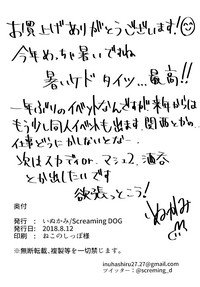 お買上げありがとうございます!
今年めっちゃ暑いですね
暑いケドタイツ…最高!!
一年ぶりのイベントなんですが来年からは
もう少し同人イベントも出ます 関西とか…
仕事どうにかしないとなー
次はスカディor マシュ2、酒呑
とか出したいです
欲張っとこう!
ぬかみ
奥付
発行 : いぬかみ/Screaming DOG
発行日: 2018.8.12
印刷 : ねこのしっぽ様
※無断転載、複製等を一切禁じます。
inuhashiru27.27@gmail.com
ツイッター:@screming_d